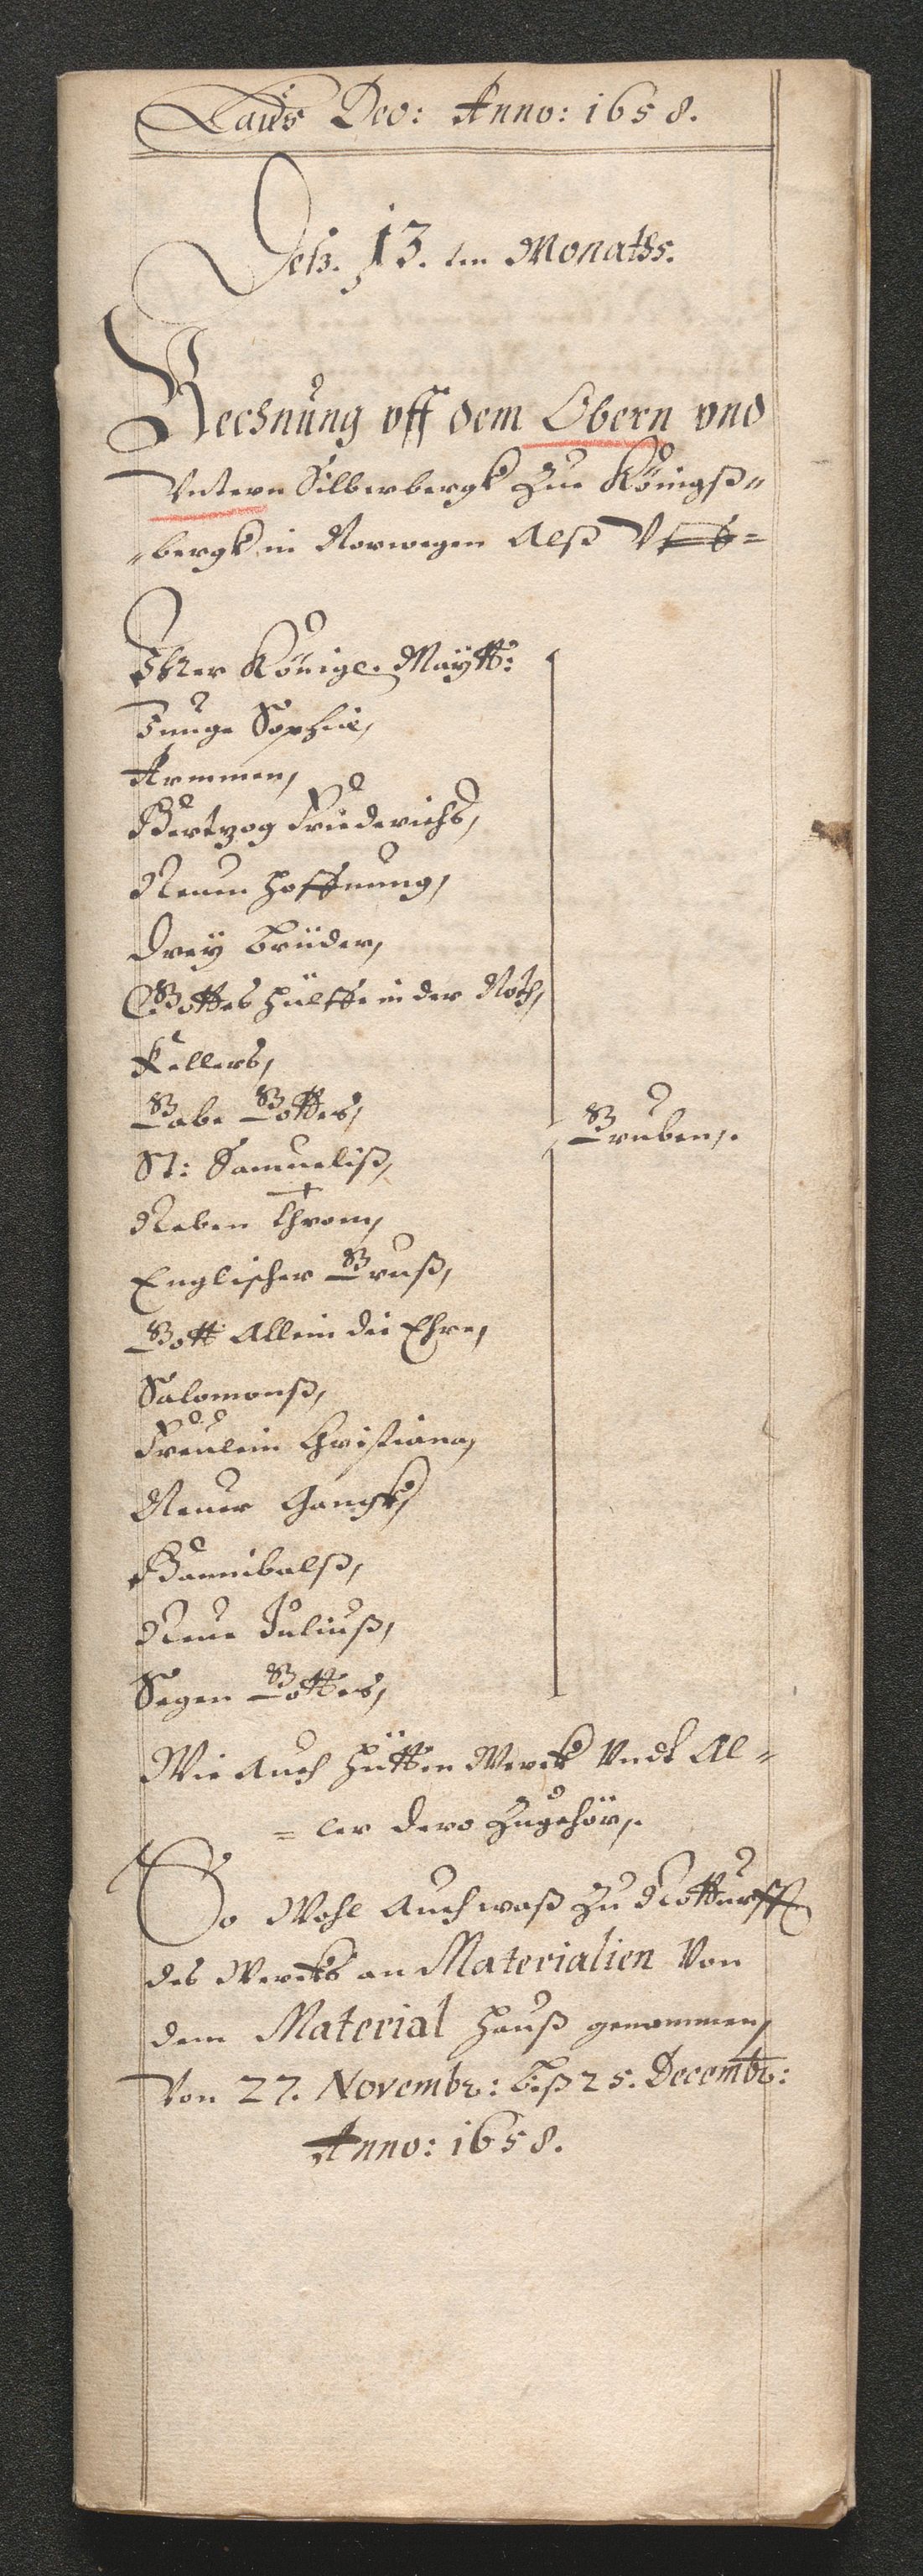 Laus Deo: Anno: 1658.
Deß. 13. ten Monaths.
Rechnung vff dem Obern vnd
Vntern Silberbergk Zue Königß„
„bergk in Norwegen Alß Vff=
Ihrer Königl. Maÿtt:
Junge Sophie,
Armmen,
Hertzog Friederichs,
Neuen Hoffnung,
Dreÿ Brüder,
Gottes Hülffe in der Noth,
Kellers,
Gabe Gottes,
Gruben,.
St: Samueliß,
Neben Throm,
Englischer Gruß,
Gott Allein die Ehre,
Salomonß,
Freulein Christiana,
Neuer Gangk,
Hannibalß,
Neue Juliuß,
Segen Gottes,
Wie Auch Hütten Werck Vndt Al=
= ler dero Zugehör,.
So Wohl Auch waß Zu Notturfft
des Wercks an Materialien Von
dem Material Hauß genommen,
Von 27. Novembr: Biß 25. Decembr:
Anno: 1658.